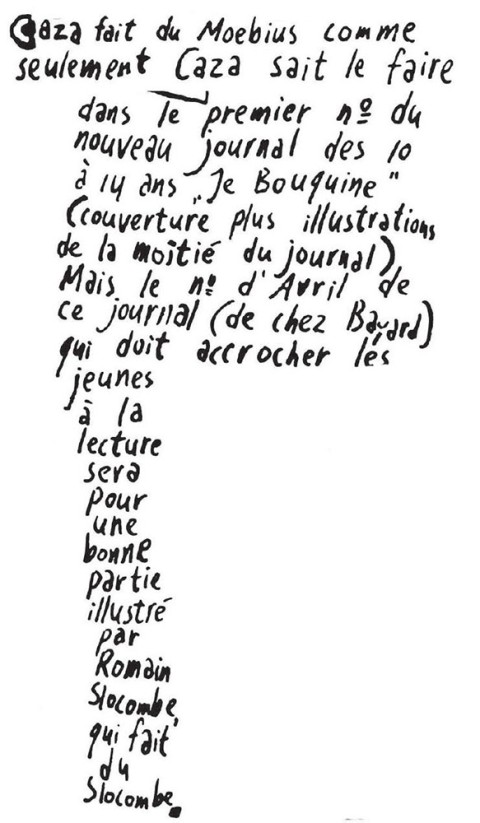 Caza fait du Moebius comme
seulement Caza sait le faire
dans le premier nº du
nouveau journal des 10
à 14 ans "Je Bouquine"
(couverture plus illustrations
de la moîtié du journal)
Mais le nº d'Avril de
ce journal (de chez Bayard)
qui doit accrocher les
jeunes
à la
lecture
sera
pour
une
bonne
partie
illustré
par
Romain
Slocombe,
qui fait
du
Slocombe.